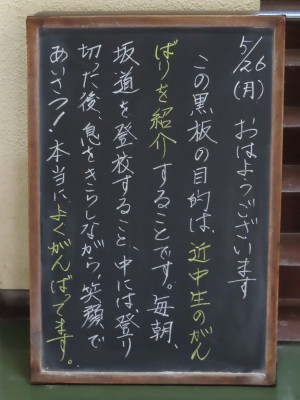 5/26(月) おはようございます
この黒板の目的は、近中生のがん
ばりを紹介することです。毎朝、
坂道を登校すること、中には登り
切った後、息をきらしながら、笑顔で
あいさつ！本当に、よくがんばってます。